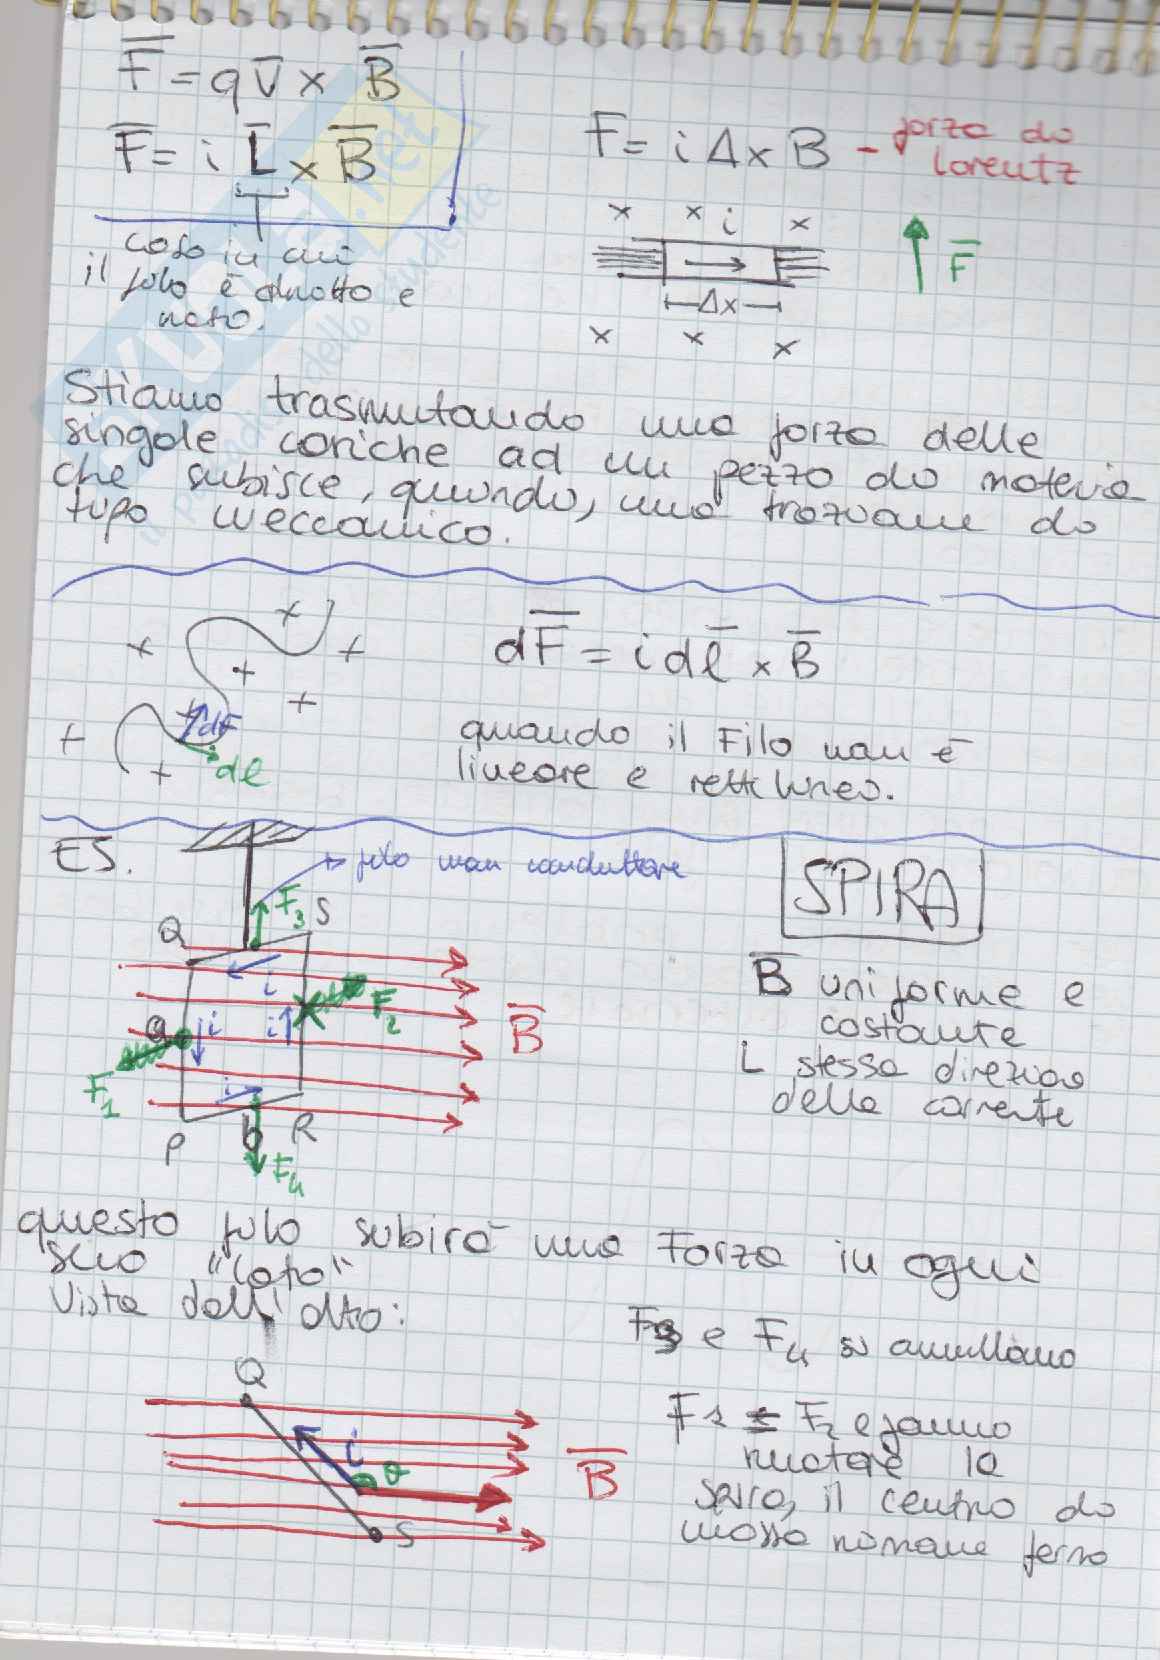 F̅ = q v̅ × B̅
F̅ = i L̅ × B̅
caso in cui
il filo è dritto e
noto.
F = i Δx B - forza di
Lorentz
× × i ×
F̅
Δx
× × ×
Stiamo trasmutando una forza delle
singole cariche ad un pezzo di materia
che subisce, quindi, una trazione di
tipo meccanico.
dF̅ = i dl̅ × B̅
+ + + + + + +
dF
dl
quando il Filo non è
lineare e rettilineo.
ES.
filo non conduttore
SPIRA
F3
Q S
i
F2
a i i
B̅
F1
i
P b R
F4
B̅ uniforme e
costante
L stessa direzione
della corrente
questo filo subirà una Forza in ogni
suo "lato"
Vista dall'alto:
F3 e F4 si annullano
Q
i θ
B̅
S
F1 = F2 e fanno
ruotare la
spira, il centro di
massa rimane fermo